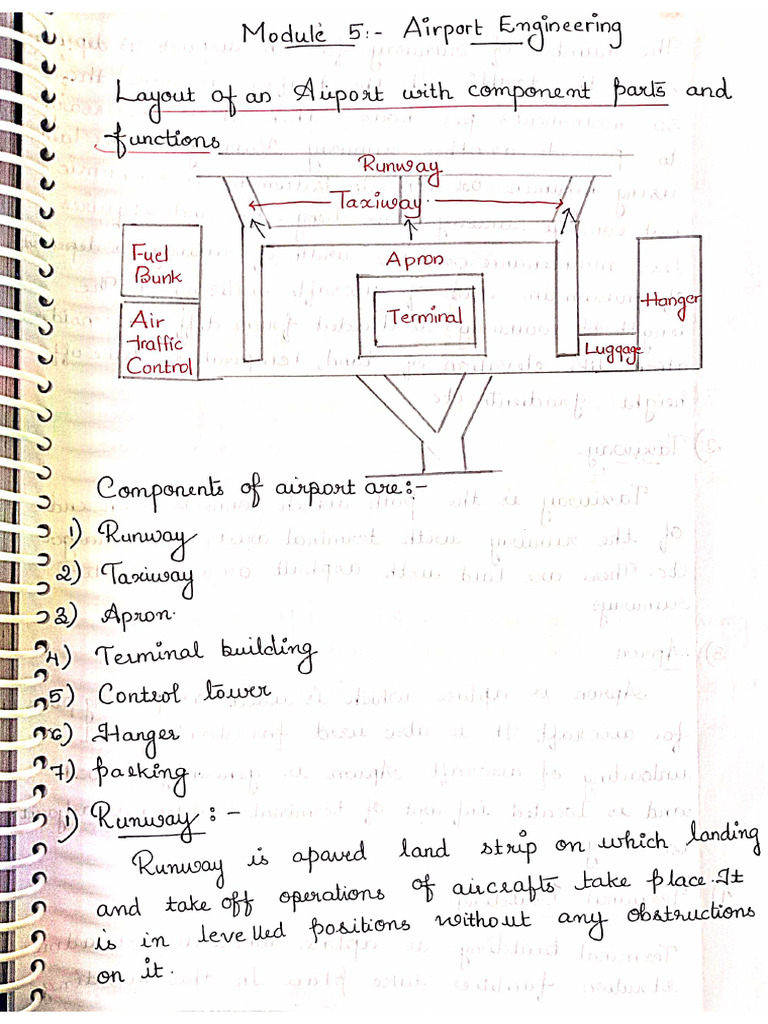 Module 5:- Airport Engineering
Layout of an Airport with component parts and
functions
Runway
Taxiway
Apron
Fuel
Bunk
Terminal
Hanger
Air
traffic
Control
Luggage
Components of airport are:-
1) Runway
2) Taxiway
3) Apron.
4) Terminal building
5) Control tower
6) Hanger
7) parking
1) Runway :-
Runway is a paved land strip on which landing
and take off operations of aircrafts take place. It
is in levelled positions without any obstructions
on it.